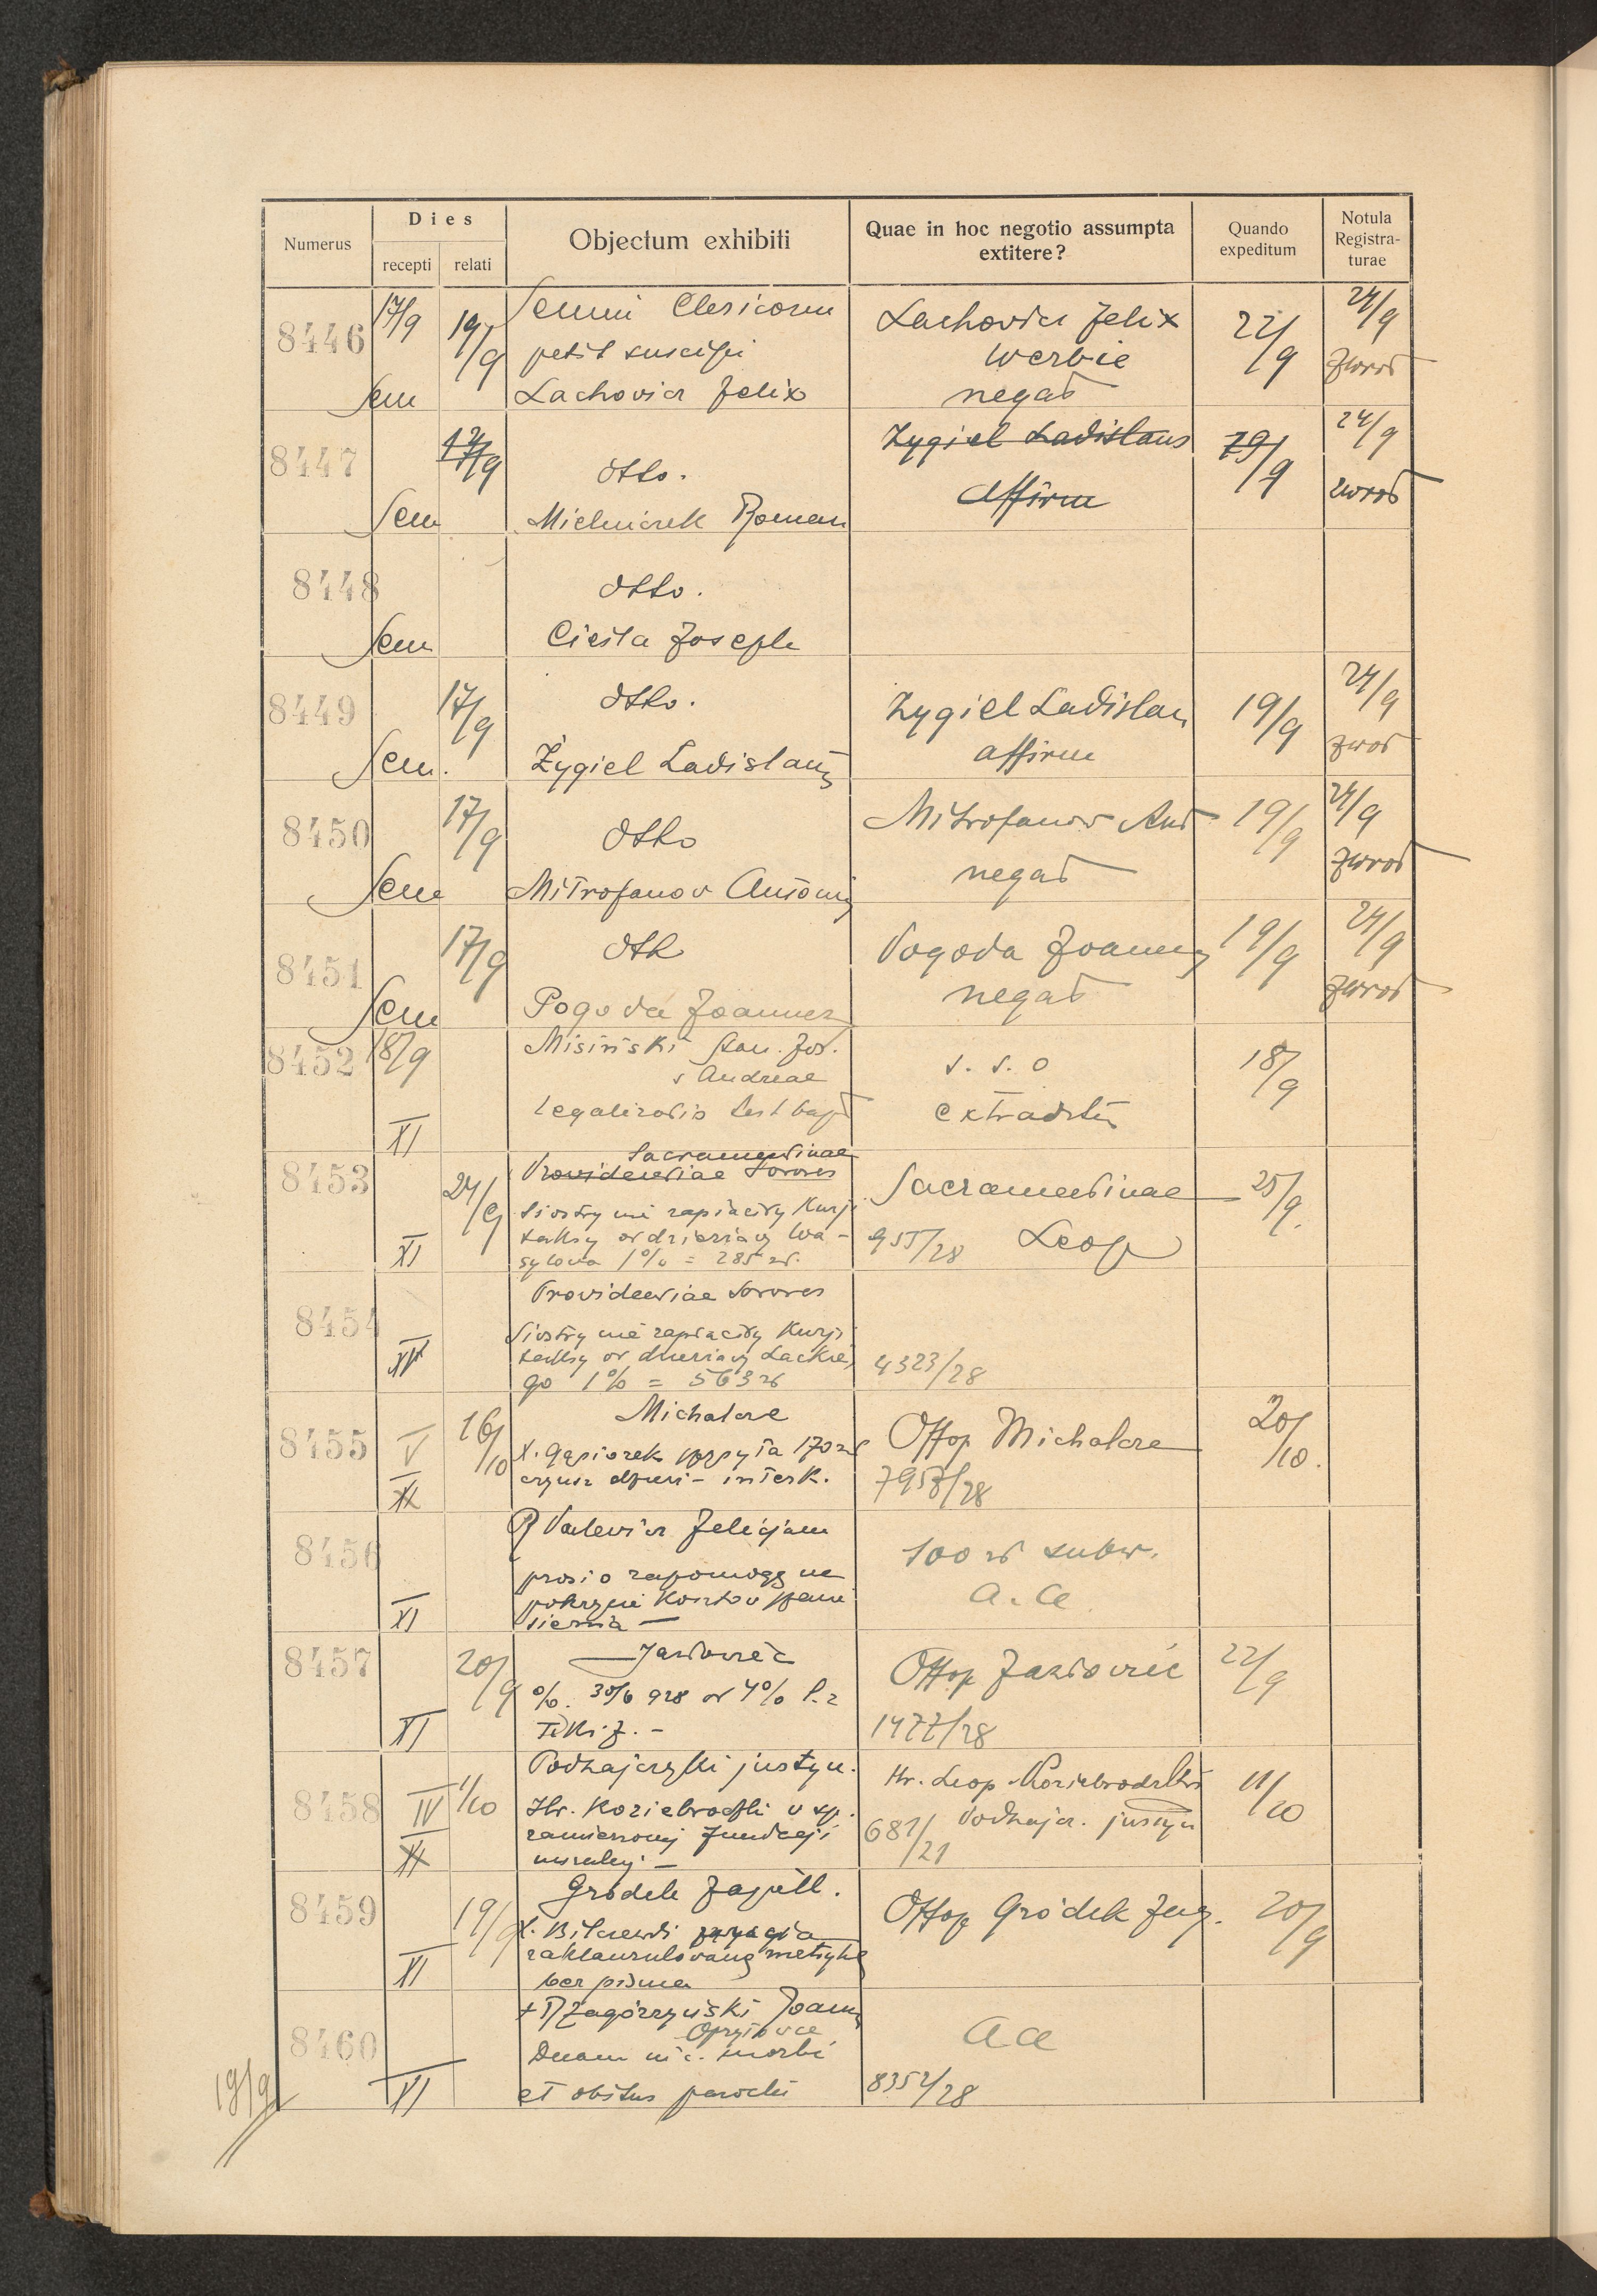 Numerus
Dies
recepti
relati
Objectum exhibiti
Quae in hoc negotio assumpta
extitere?
Quando
expeditum
Notula
Registra-
turae
8446
17/9
19/9
Clericorum
petit suscipi
Lachovicz Felix
Sem
Lachovicz Felix
Werbie
negat
22/9
24/9
zwrot
8447
17/9
dtto.
Mielniczek Roman
Sem
Zygiel Ladislaus
Affirm
19/9
24/9
zwrot
8448
dtto.
Cieśla Joseph
Sem
8449
17/9
dtto.
Żygiel Ladislaus
Sem.
Zygiel Ladislaus
affirm
19/9
24/9
zwrot
8450
17/9
dtto
Mitrofanov Antoni
Sem
Mitrofanow Ant
negat
19/9
24/9
zwrot
8451
17/9
dtto
Pogoda Joannes
Sem
Pogoda Joannes
negat
19/9
24/9
zwrot
8452
18/9
XI
Misiński Stan. Jos.
s Andreae
legalizatio test bapt
s. s. o
extraditur
18/9
8453
24/9
XI
Sacramentinae
Providentiae Sorores
Siostry nie zapłaciły Kurji
taksy od dzierżawy Wa-
sylowa 1% = 285 zł.
Sacramentinae
955/28 Leop
25/9.
8454
XI
Providentiae Sorores
Siostry nie zapłaciły Kurji
taksy od dzierżawy Lackie
go 1% = 563 zł
4323/28
8455
V
XI
16/10
Michalcze
X. Gąsiorek 170 zł
czynsz dzier- interk.
Offop Michalcze
7958/28
20/10.
8456
XI
Felicjan
prosi o zapomogę na
pokrycie kosztów
100 zł subw.
a. a
8457
XI
20/9
Jazłowiec
%. 30/6 928 od 4% P. z
T. Kr. Z. -
Offop Jazłowiec
1477/28
22/9
8458
IV
XI
1/10
Podhajczyki justyn.
Hr. Koziebrodzki v sp.
zamierzonej fundacji
Hr. Leop Koziebrodzki
Podhajcz. justyn
681/21
11/10
8459
XI
19/9
Gródek Jagiell.
X. Bilczewski
zaklauzulowaną metrykę
bez pisma
Offop Gródek Jag.
20/9
8460
XI
+ P Zagórzyński Joann
Opryłowce
Decan nt. morbi
et obitus parochi
a a
8352/28
19/9